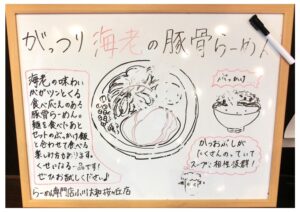 がっつり海老の豚骨らーめん
海老の味わい
がガツンとくる
食べごたえのある
豚骨らーめん。
麺を食べたあと
セットのぶっかけ飯
と合わせて食べる
楽しみ方もあります。
くせになる一品です!
ぜひお試しください♪
らーめん専門店小川 大和桜ヶ丘店
ぶっかけ
かつおぶしが
たくさんのっていて
スープと相性抜群!